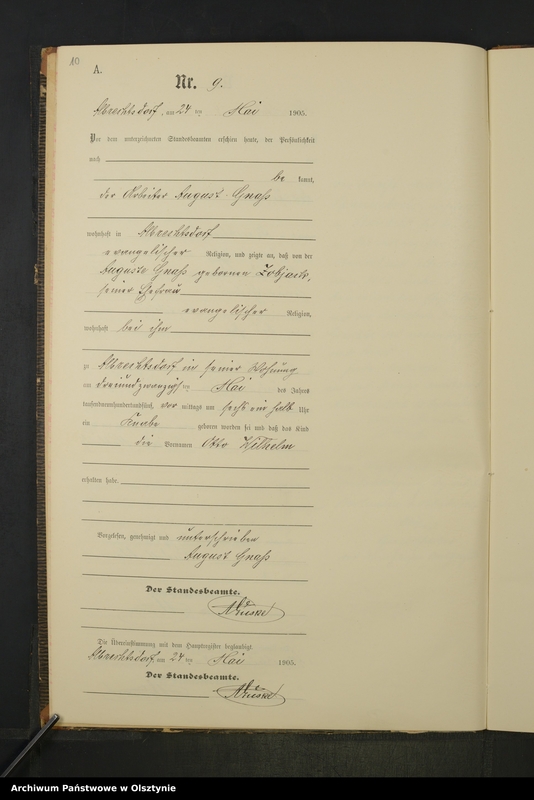 10
A.
Nr. 9.
Albrechtsdorf, am 24 ten Mai 1905.
Vor dem unterzeichneten Standesbeamten erschien heute, der Persönlichkeit
nach
be kannt,
der Arbeiter August Gnaß
wohnhaft in Albrechtsdorf
evangelischer Religion, und zeigte an, daß von der
Auguste Gnaß geborenen
seiner Ehefrau
evangelischer Religion,
wohnhaft bei ihm
zu Albrechtsdorf in seiner Wohnung
am dreiundzwanzigs ten Mai des Jahres
tausendneunhundertundfünf, vor mittags um sechs ein halb Uhr
ein Knabe geboren worden sei und daß das Kind
die Vornamen Otto Wilhelm
erhalten habe.
Vorgelesen, genehmigt und unterschrieben
August Gnaß
Der Standesbeamte.
Die Übereinstimmung mit dem Hauptregister beglaubigt.
Albrechtsdorf, am 24 ten Mai 1905.
Der Standesbeamte.
Archiwum Państwowe w Olsztynie